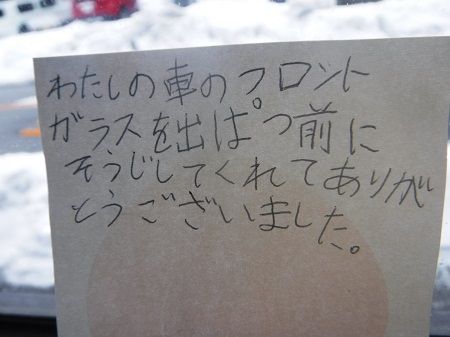 わたしの車のフロント
ガラスを出ぱつ前に
そうじしてくれてありが
とうございました。